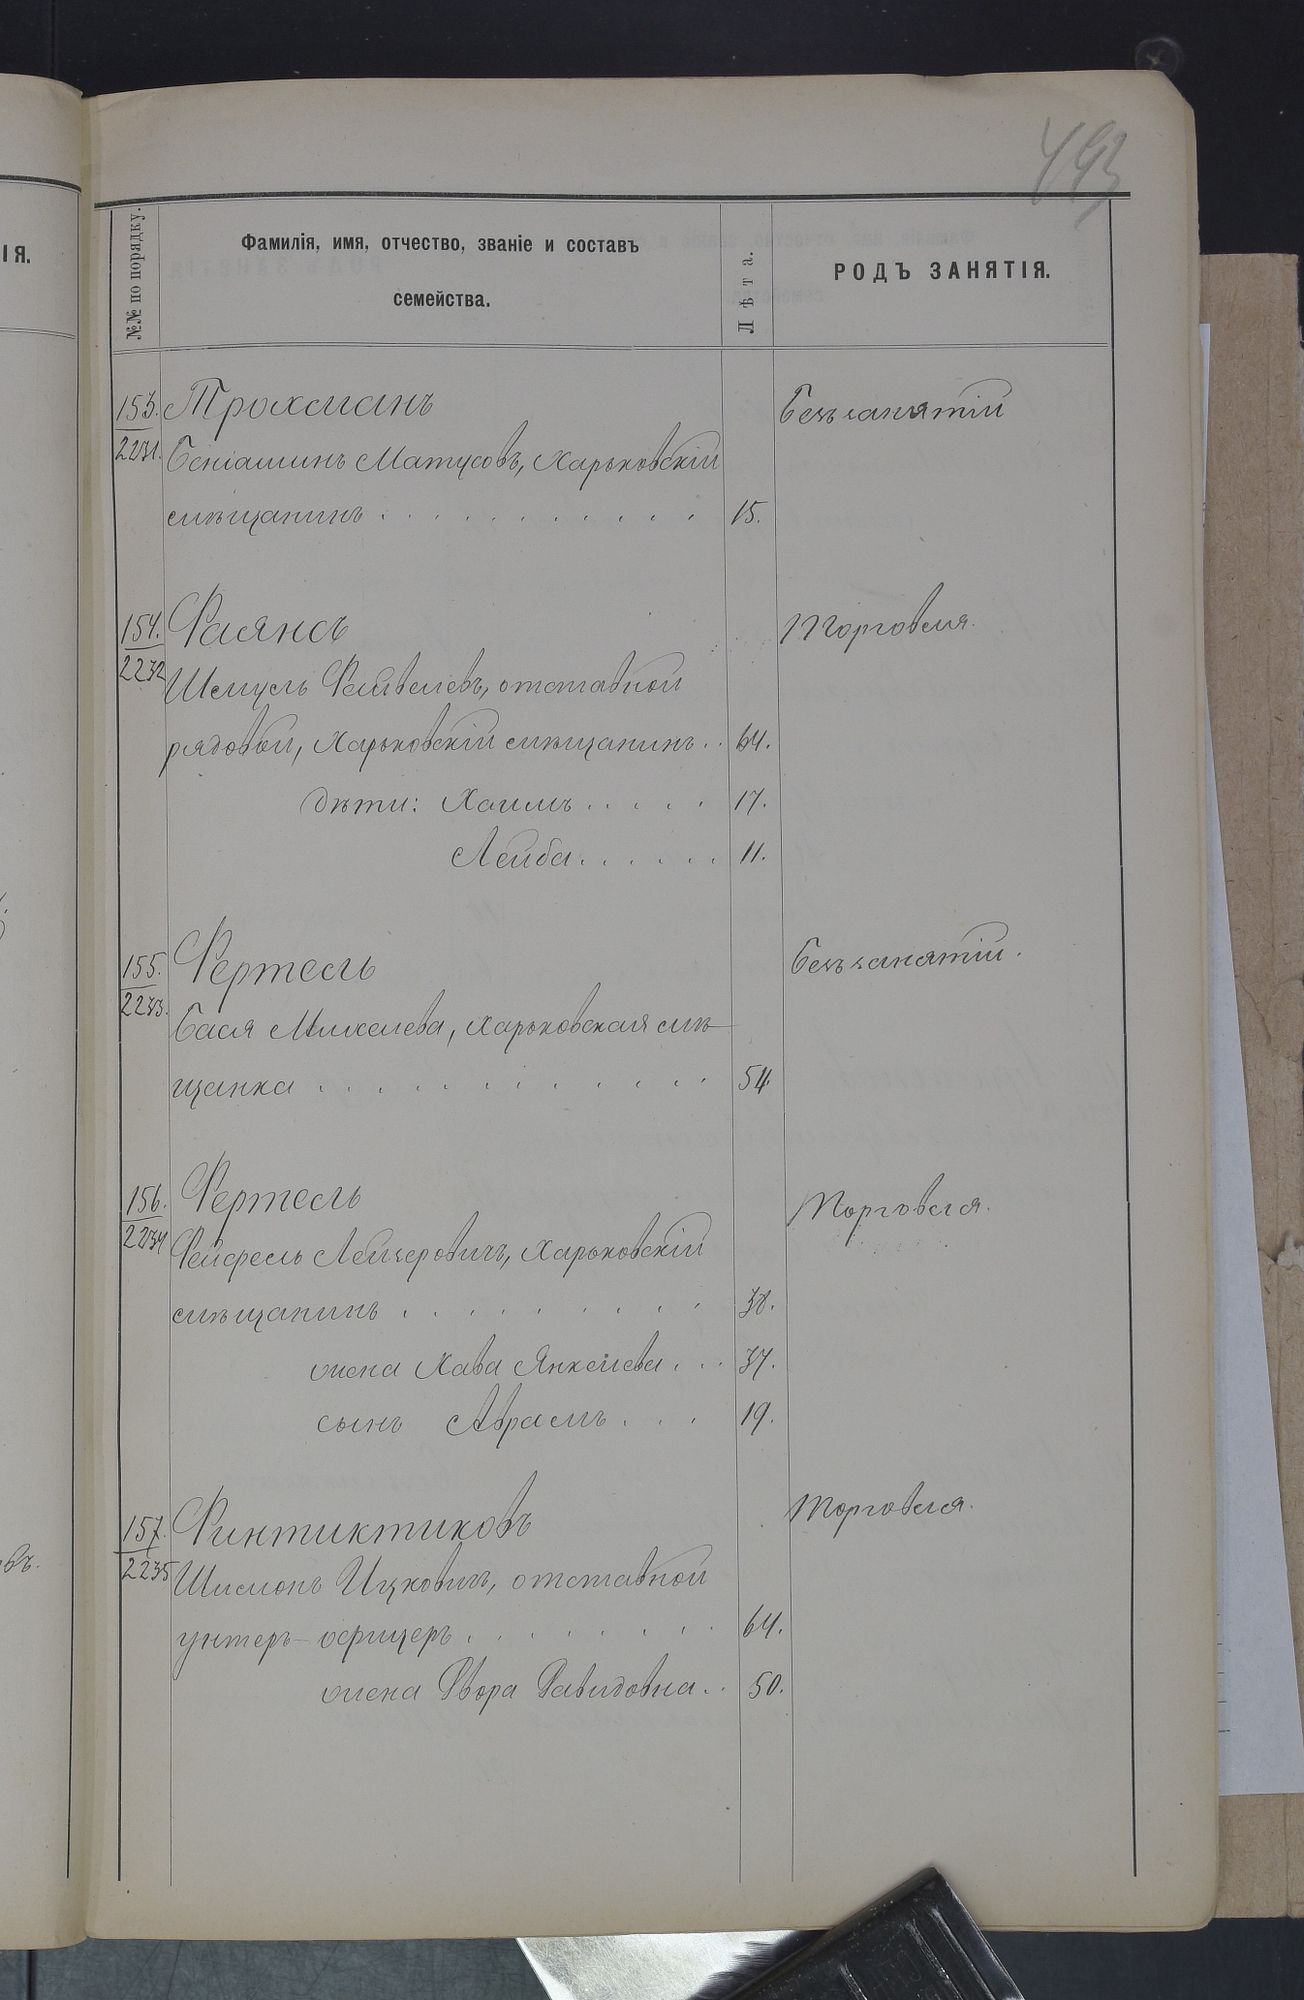 493
ІЯ.
№№ по порядку.
Фамилія, имя, отчество, званіе и составъ
семейства.
Лѣта.
РОДЪ ЗАНЯТІЯ.
153. Трохманъ Безъ занятій
2231. Беніаминъ Матусовъ, Харьковскій
мѣщанинъ . . . . . . . . . . . . 15.
154. Фаянсъ Торговля.
2232 Шемуель Файвелевъ, отставной
рядовый, Харьковскій мѣщанинъ . . 64.
дѣти: Хаимъ . . . . . 17.
Лейба . . . . . . 11.
155. Фертель Безъ занятій.
2233. Бася Михелева, Харьковская мѣ-
щанка . . . . . . . . . . . . 54
156. Фертель Торговля.
2234 Фейфель Лейзеровичъ, Харьковскій
мѣщанинъ . . . . . . . . . 38.
жена Хава Янкелева . . . 37.
сынъ Абрамъ . . . 19.
157. Финтиктиковъ Торговля.
2235 Шимонъ Ицковичъ, отставной
унтеръ-офицеръ . . . . . . . . . 64.
жена Двора Давидовна . . 50.